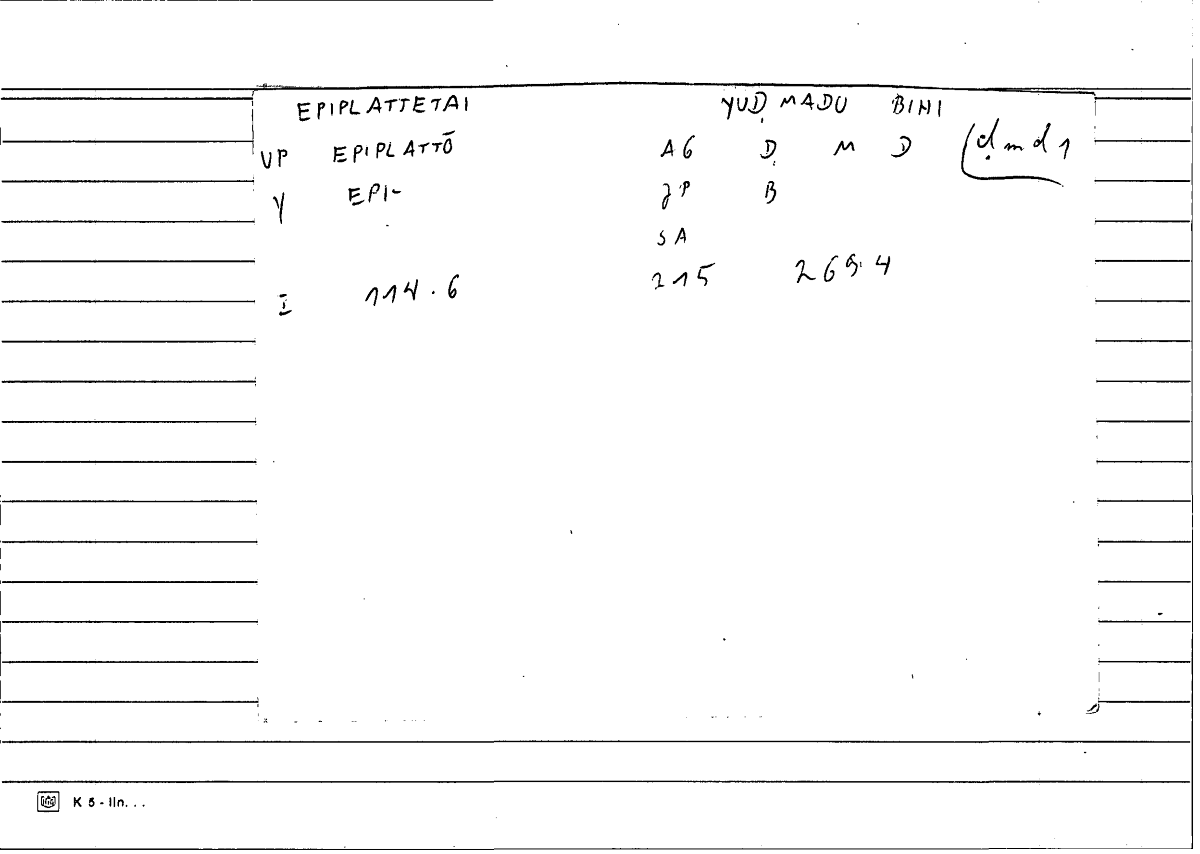 EPIPLATTETAI YUḌMADU BIHI
VP EPIPLATTŌ AG Ḍ M D (ḍmd1
Y EPI- JP B
SA
I 114.6 215 269.4
K 5 - lin. . .